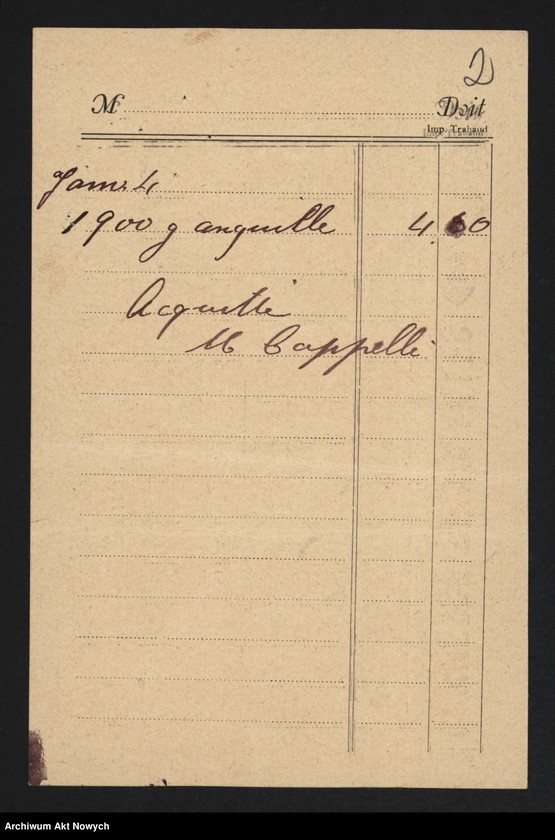 2
M Doit
Imp. Trabaud
4
1900 g anguille 4 60
Acquitté
M Cappelli
Archiwum Akt Nowych